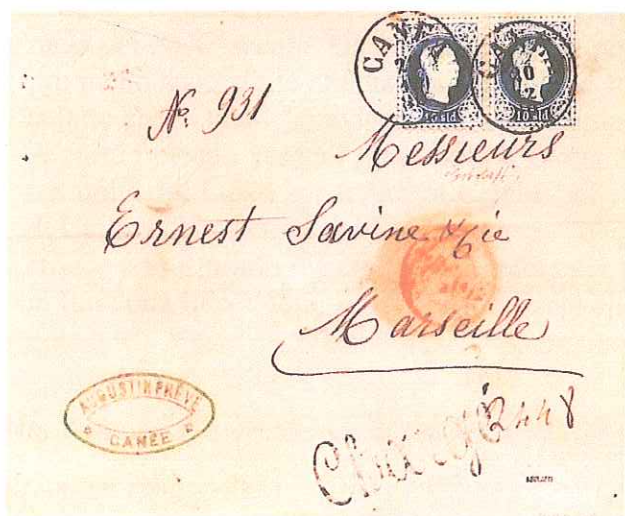 CANEA
10 sld
10 sld
No. 931
Messieurs
Ernest Savine & Cie
Marseille
AUGUSTIN PRÈVE
CANÉE
Chargé 2448